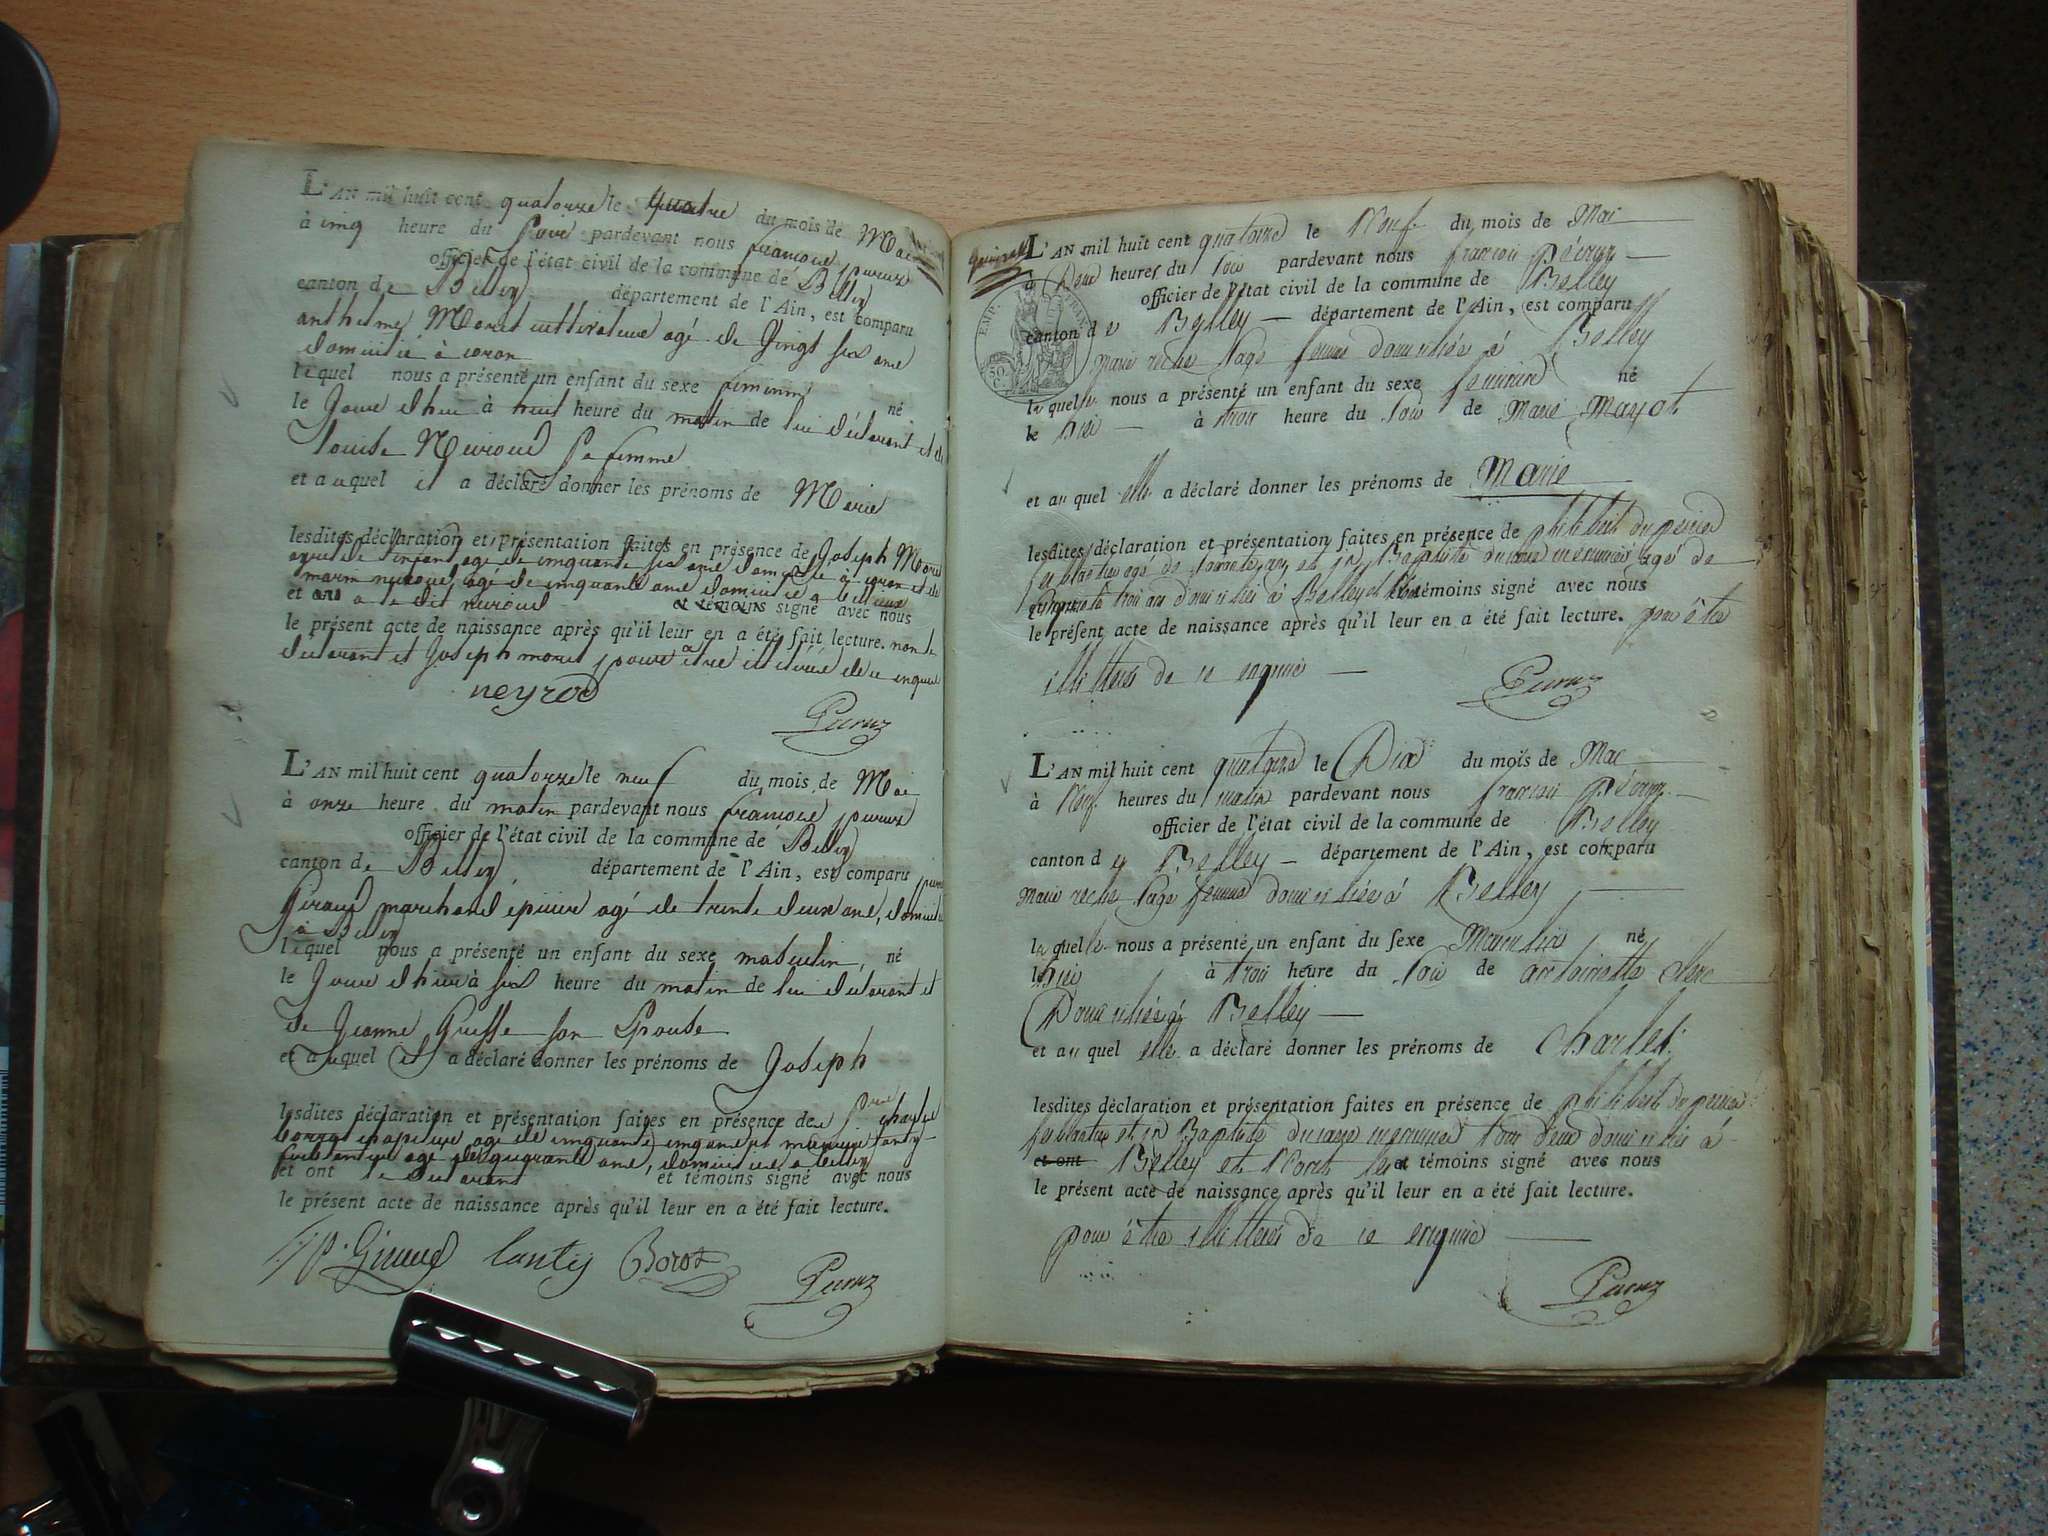 L'AN mil huit cent quatorze le quatre du mois de Mai
à cinq heure du soir pardevant nous françois peruz
officier de l'état civil de la commune de Belley
canton de Belley département de l'Ain, est comparu
anthelme Moret cultivateur agé de vingt six ans
domicilié à coron
lequel nous a présenté un enfant du sexe feminin né
le Jour d'hui à huit heure du matin de lui déclarant et de
louise Neiroud sa femme
et auquel il a déclaré donner les prénoms de Marie
lesdites déclaration et présentation faites en présence de Joseph Moret
agé de cinquante six ans domicilié à coron et de
agé de cinquante ans domicilié à
et ont neiroud et témoins signé avec nous
le présent acte de naissance après qu'il leur en a été fait lecture. non le
déclarant et Joseph moret pour être illitéré de ce enquis
neyrod
Peruz
L'AN mil huit cent quatorze le neuf du mois de Mai
à onze heure du matin pardevant nous françois peruz
officier de l'état civil de la commune de Belley
canton de Belley département de l'Ain, est comparu
Giraud marchand épicier agé de trente deux ans, domicilié
à Belley
lequel nous a présenté un enfant du sexe masculin, né
le Jour d'hui à six heure du matin de lui déclarant et
de Jeanne Guiffe son Epouse
et auquel il a déclaré donner les prénoms de Joseph
lesdites déclaration et présentation faites en présence de charles
borrot chapelier agé de cinquante cinq ans et lanty
ferblantier agé de quarante ans, domiciliés à belley
et ont le déclarant et témoins signé avec nous
le présent acte de naissance après qu'il leur en a été fait lecture.
Giraud lantij Borot
Peruz
L'AN mil huit cent quatorze le Neuf du mois de Mai
à Deux heures du soir pardevant nous françois Péruz
officier de l'état civil de la commune de Belley
EMP. 50 C.
canton de Belley département de l'Ain, est comparu
marie roche sage femme domiciliée à Belley
laquelle nous a présenté un enfant du sexe feminin né
le hier à trois heure du soir de Marie Mayot
et auquel elle a déclaré donner les prénoms de Marie
lesdites déclaration et présentation faites en présence de philibert duperier
ferblantier agé de quarante ans et jn Baptiste menuisier agé de
trois ans domiciliés à Belley et témoins signé avec nous
le présent acte de naissance après qu'il leur en a été fait lecture. pour être
illettérés de ce enquis
Peruz
L'AN mil huit cent quatorze le Dix du mois de Mai
à Neuf heures du matin pardevant nous françois Péruz
officier de l'état civil de la commune de Belley
canton de Belley département de l'Ain, est comparu
marie roche sage femme domiciliée à Belley
laquelle nous a présenté un enfant du sexe Masculin né
hier à trois heure du soir de antoinette clerc
Domiciliée à Belley
et auquel elle a déclaré donner les prénoms de Charles.
lesdites déclaration et présentation faites en présence de philibert duperier
ferblantier et jn Baptiste menuisier tous deux domiciliés à
et ont Belley et n'ont les témoins signé avec nous
le présent acte de naissance après qu'il leur en a été fait lecture.
pour être illettérés de ce enquis
Peruz